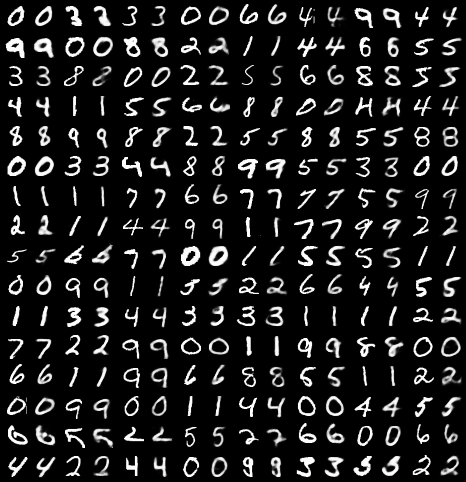 0 0 3 3 3 3 0 0 6 6 4 4 9 9 4 4
9 9 0 0 8 8 2 2 1 1 4 4 6 6 5 5
3 3 8 8 0 0 2 2 5 5 6 6 8 8 5 5
4 4 1 1 5 5 6 6 8 8 0 0 4 4 4 4
8 8 9 9 8 8 2 2 5 5 8 8 5 5 8 8
0 0 3 3 4 4 8 8 9 9 5 5 3 3 0 0
1 1 1 1 7 7 6 6 7 7 7 7 5 5 9 9
2 2 1 1 4 4 9 9 1 1 7 7 9 9 2 2
5 5 6 6 7 7 0 0 1 1 5 5 5 5 1 1
0 0 9 9 1 1 5 5 2 2 6 6 4 4 5 5
1 1 3 3 4 4 3 3 3 3 1 1 1 1 2 2
7 7 2 2 9 9 0 0 1 1 9 9 8 8 0 0
6 6 1 1 9 9 6 6 8 8 5 5 1 1 2 2
0 0 9 9 0 0 1 1 4 4 0 0 4 4 5 5
6 6 5 5 2 2 5 5 2 2 6 6 0 0 6 6
4 4 2 2 4 4 0 0 9 9 3 3 3 3 2 2